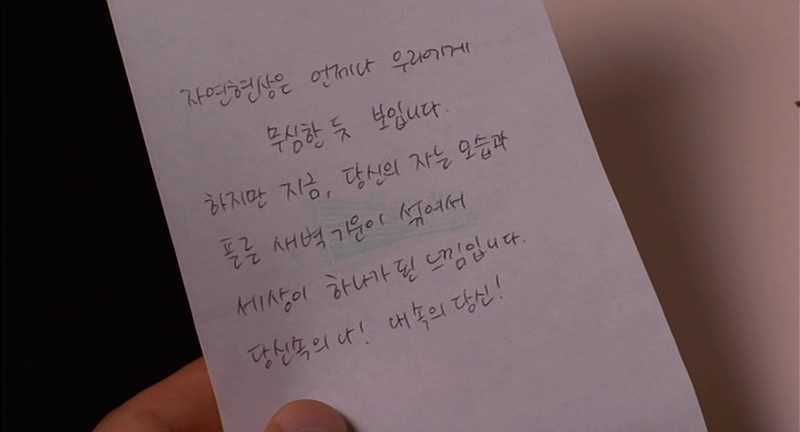 자연현상은 언제나 우리에게
무심한 듯 보입니다.
하지만 지금, 당신의 자는 모습과
푸른 새벽 기운이 섞여서
세상이 하나가 된 느낌입니다.
당신속의 나! 내 속의 당신!